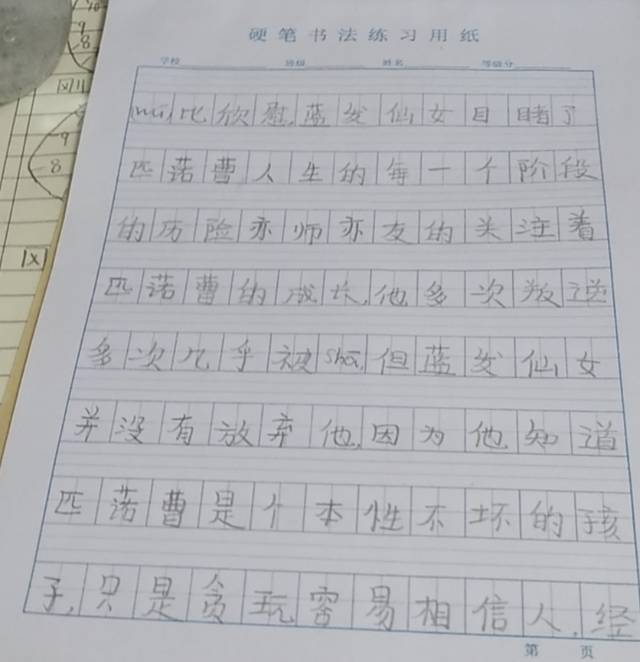 硬笔书法练习用纸
学校 班级 姓名 等级分
mú,比欣慰,蓝发仙女目睹了
匹诺曹人生的每一个阶段
的历险亦师亦友的关注着
匹诺曹的成长,他多次叛逆
多次几乎被shā,但蓝发仙女
并没有放弃他,因为他知道
匹诺曹是个本性不坏的孩
子,只是贪玩容易相信人,经
第 页